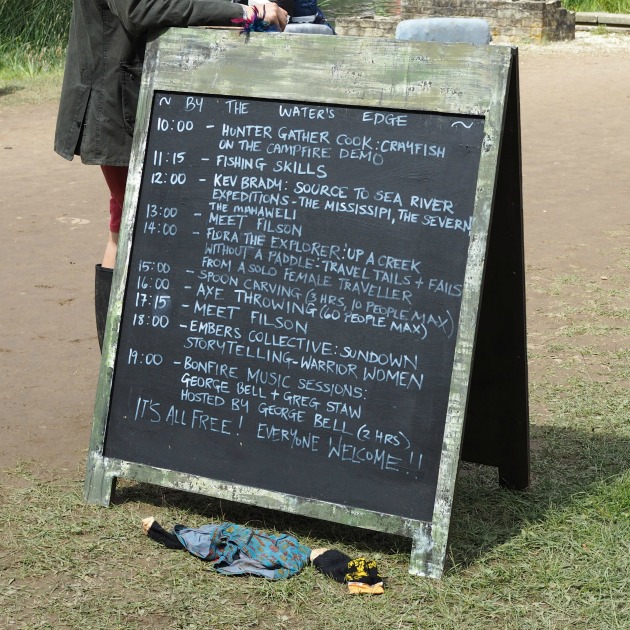 ~ BY THE WATER'S EDGE ~
10:00 - HUNTER GATHER COOK: CRAYFISH
ON THE CAMPFIRE DEMO
11:15 - FISHING SKILLS
12:00 - KEV BRADY: SOURCE TO SEA RIVER
EXPEDITIONS - THE MISSISSIPI, THE SEVERN
THE MAHAWELI
13:00 - MEET FILSON
14:00 - FLORA THE EXPLORER: UP A CREEK
WITHOUT A PADDLE: TRAVEL TAILS + FAILS
FROM A SOLO FEMALE TRAVELLER
15:00 - SPOON CARVING (3 HRS, 10 PEOPLE MAX)
16:00 - AXE THROWING (60 PEOPLE MAX)
17:15 - MEET FILSON
18:00 - EMBERS COLLECTIVE: SUNDOWN
STORYTELLING - WARRIOR WOMEN
19:00 - BONFIRE MUSIC SESSIONS:
GEORGE BELL + GREG STAW
HOSTED BY GEORGE BELL (2 HRS)
IT'S ALL FREE! EVERYONE WELCOME!!